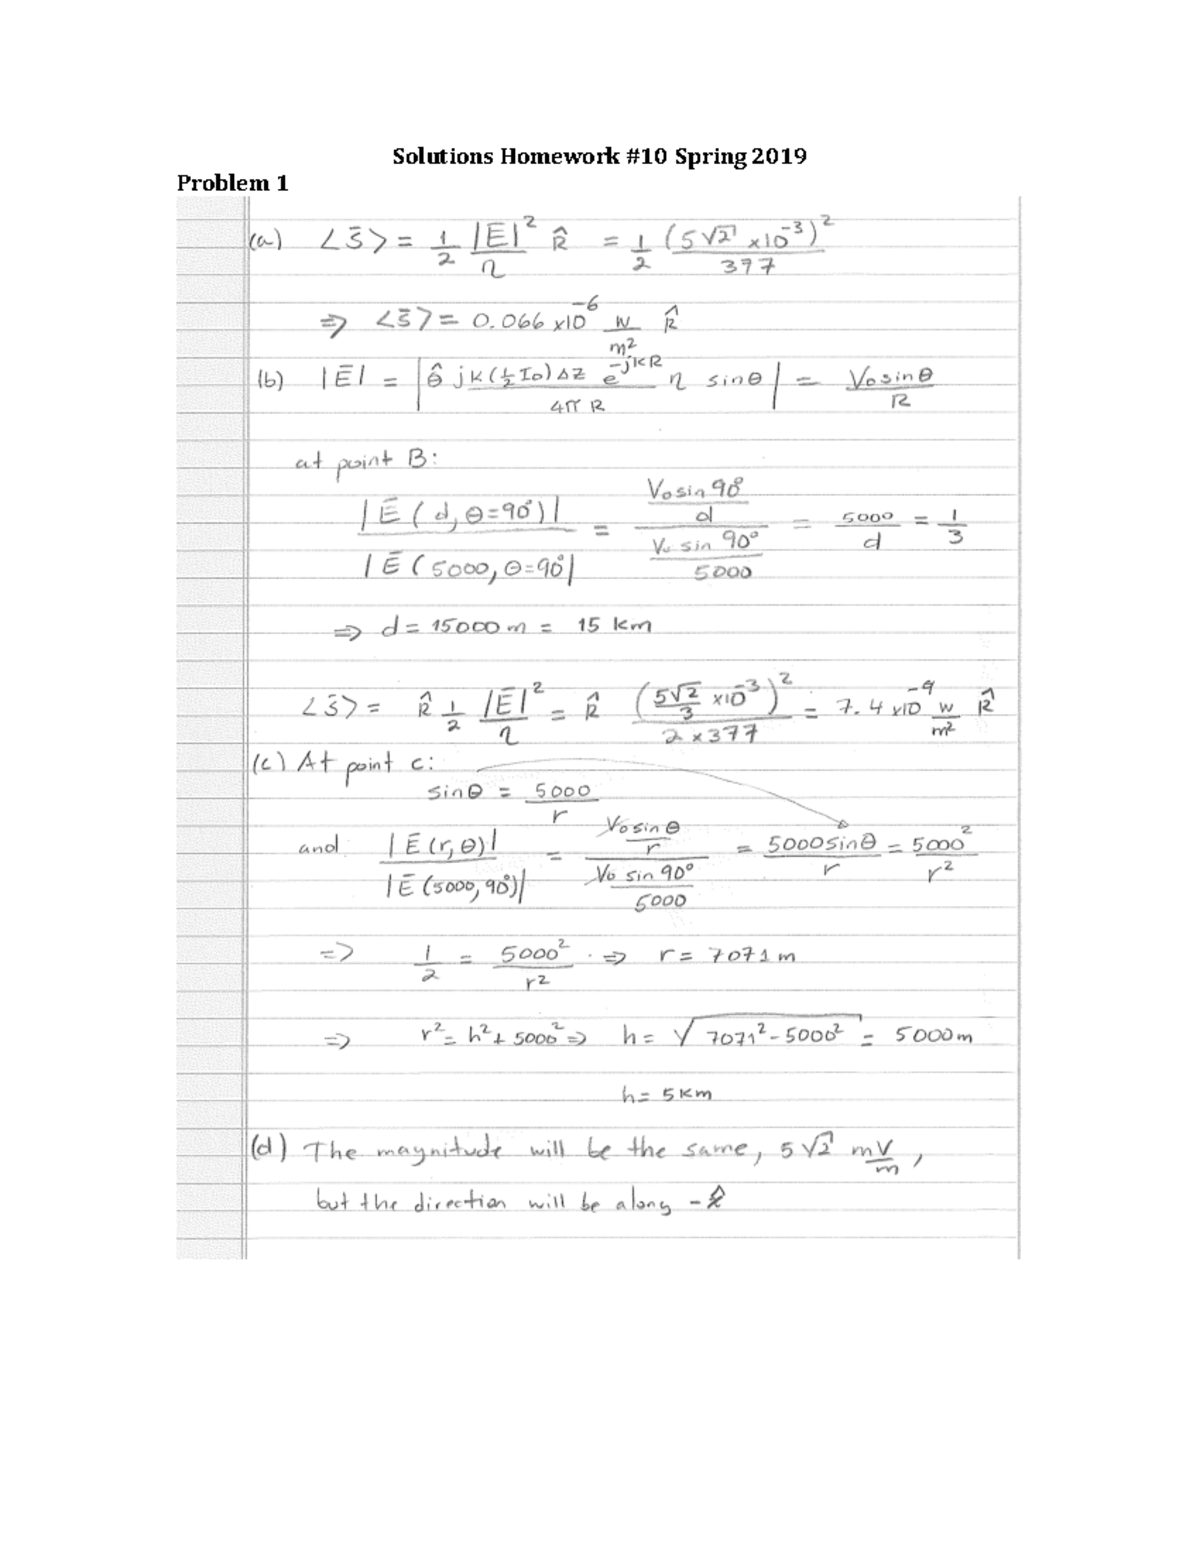 Solutions Homework #10 Spring 2019
Problem 1
(a) <S̄> = 1/2 |Ē|²/η R̂ = 1/2 (5√2 x10⁻³)²/377
⇒ <S̄> = 0.066 x10⁻⁶ W/m² R̂
(b) |Ē| = |θ̂ jk(½ I₀)ΔZ e^(-jkR)/(4π R) η sinθ| = V₀ sinθ/R
at point B:
|Ē(d, θ=90°)|/|Ē(5000, θ=90°)| = (V₀ sin 90°/d)/(V₀ sin 90°/5000) = 5000/d = 1/3
⇒ d = 15000 m = 15 km
<S̄> = R̂ 1/2 |Ē|²/η = R̂ (5√2/3 x10⁻³)²/(2 x 377) = 7.4 x10⁻⁹ W/m² R̂
(c) At point c:
sinθ = 5000/r
and |Ē(r, θ)|/|Ē(5000, 90°)| = (V₀ sinθ/r)/(V₀ sin 90°/5000) = 5000 sinθ/r = 5000²/r²
=> 1/2 = 5000²/r² ⇒ r = 7071 m
⇒ r² = h² + 5000² ⇒ h = √(7071² - 5000²) = 5000 m
h = 5 km
(d) The magnitude will be the same, 5√2 mV/m,
but the direction will be along -